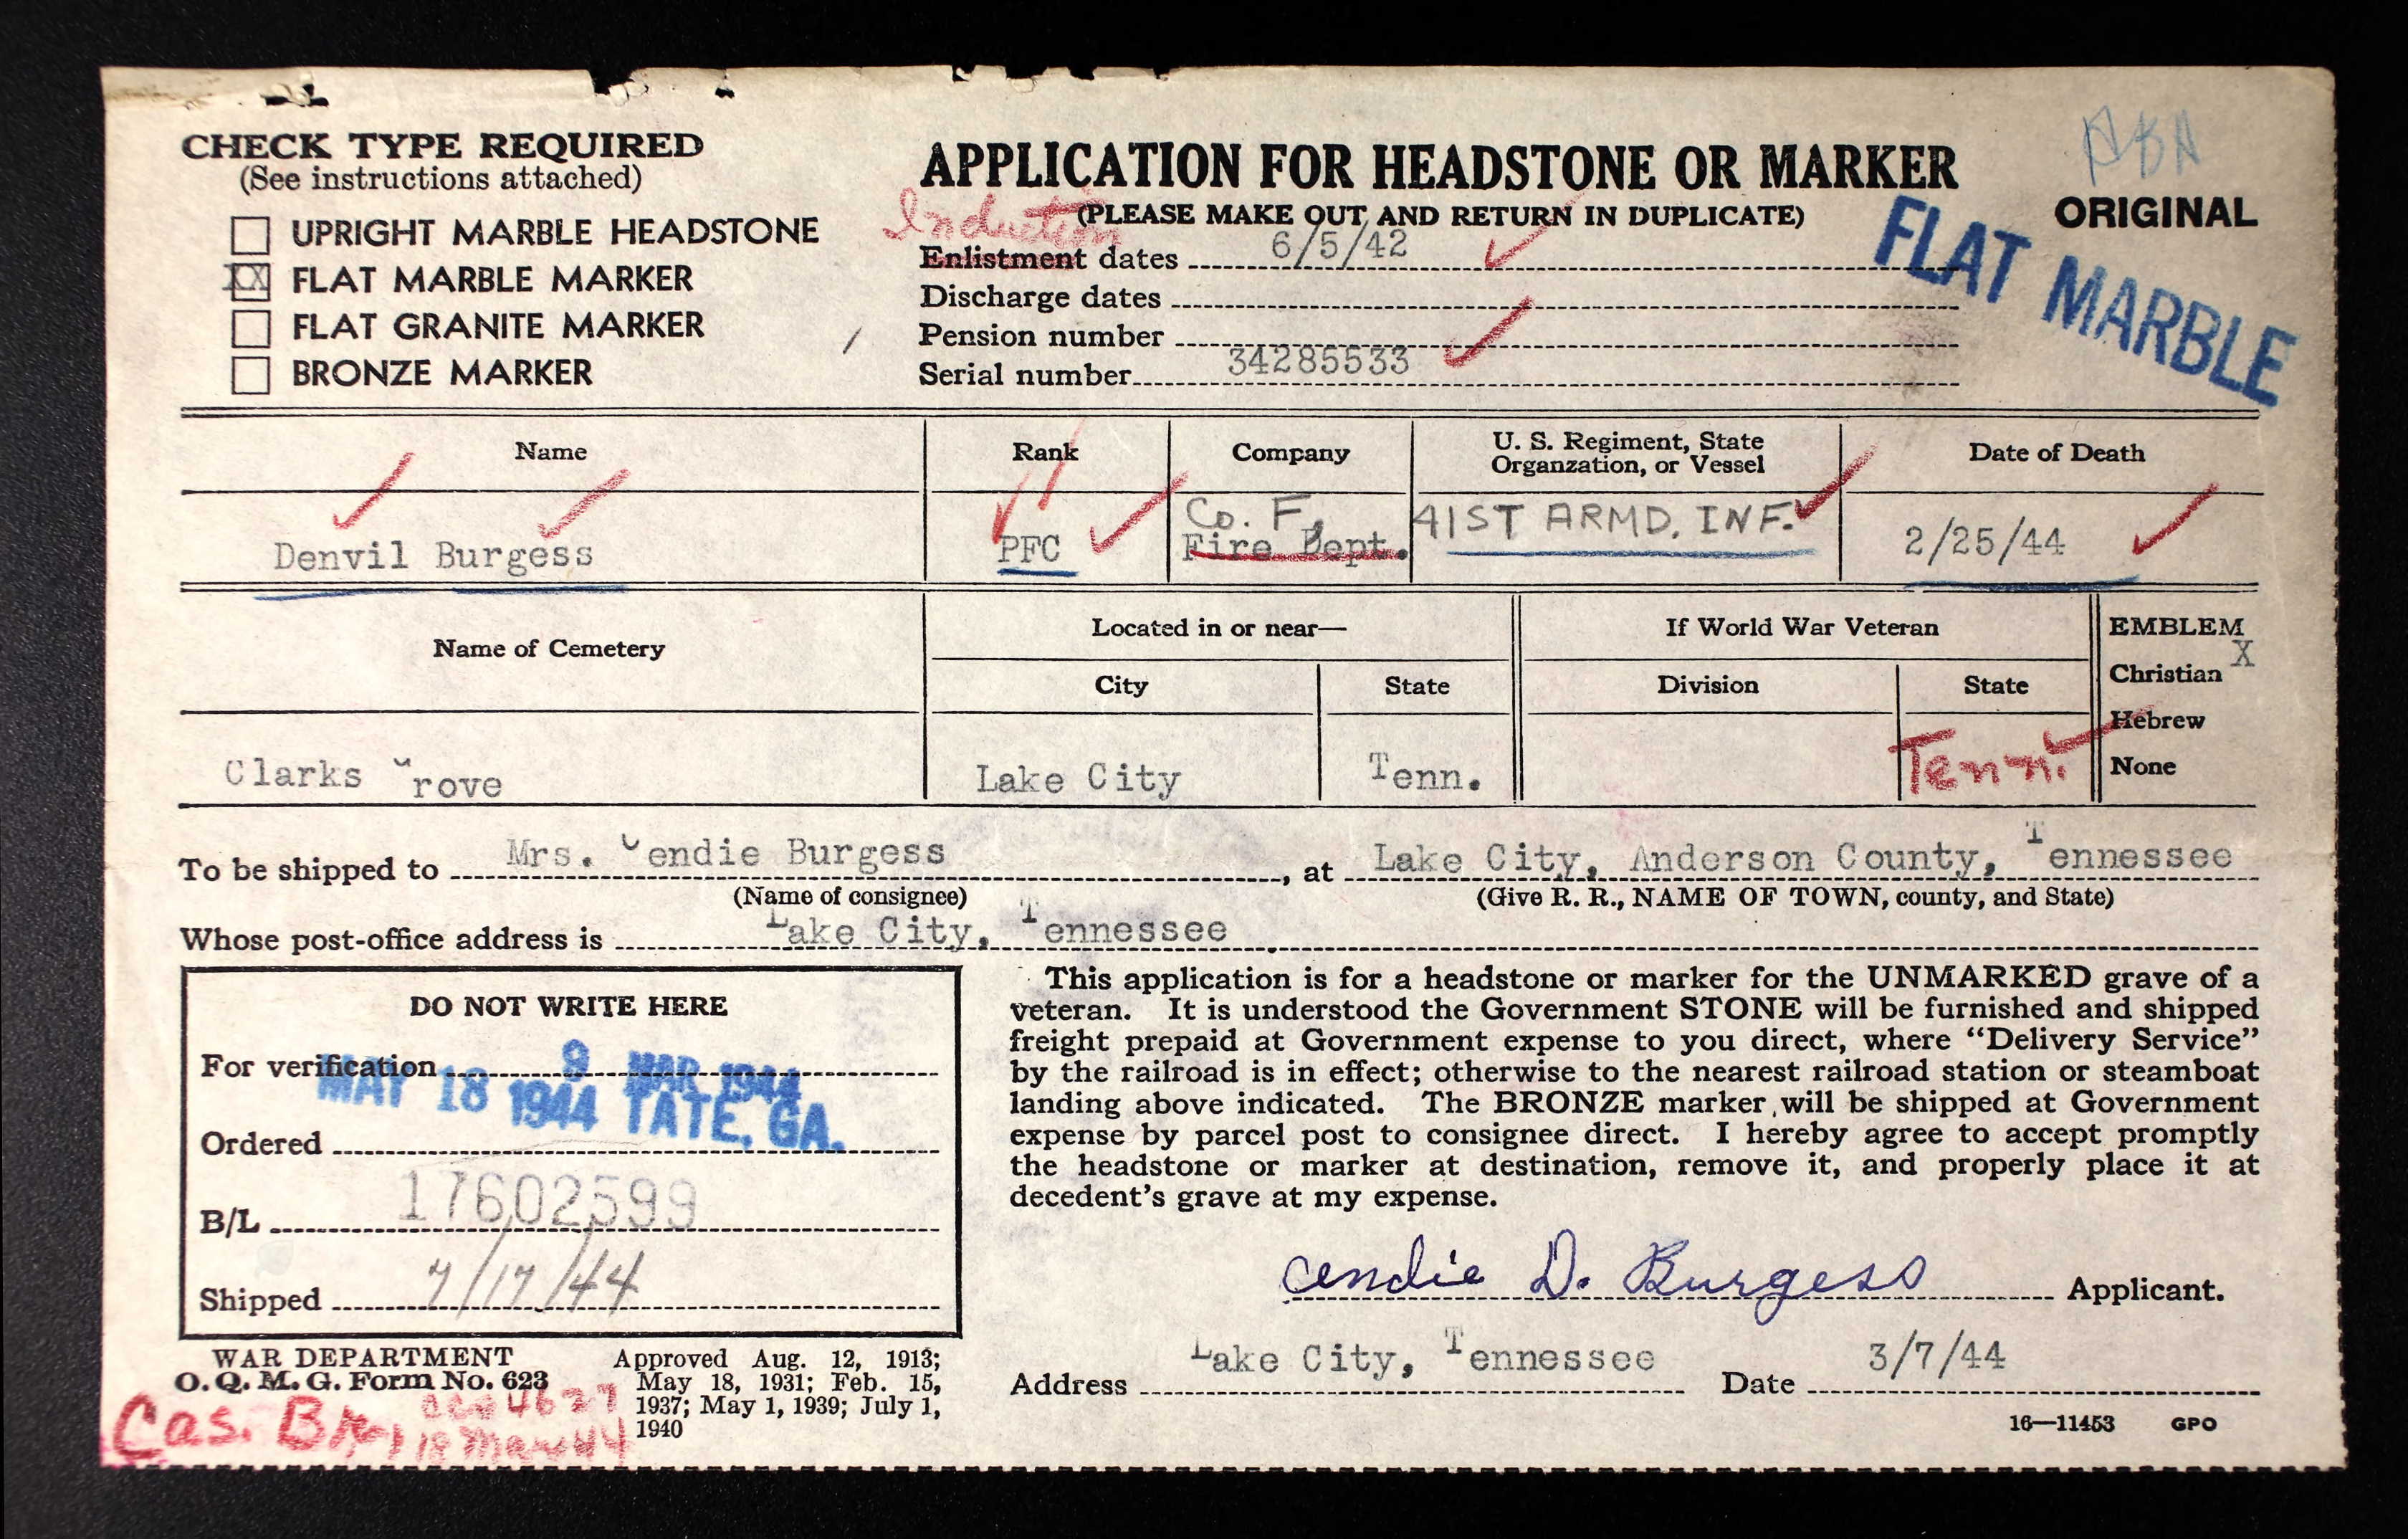 CHECK TYPE REQUIRED
(See instructions attached)
UPRIGHT MARBLE HEADSTONE
XX FLAT MARBLE MARKER
FLAT GRANITE MARKER
BRONZE MARKER
APPLICATION FOR HEADSTONE OR MARKER
(PLEASE MAKE OUT AND RETURN IN DUPLICATE)
ORIGINAL
FLAT MARBLE
Induction
Enlistment dates 6/5/42
Discharge dates
Pension number
Serial number 34285533
Name
Rank
Company
U. S. Regiment, State
Organzation, or Vessel
Date of Death
Denvil Burgess
PFC
Co. F,
Fire Dept.
41ST ARMD. INF.
2/25/44
Name of Cemetery
Located in or near—
City
State
If World War Veteran
Division
State
EMBLEM
Christian X
Hebrew
None
Clarks Grove
Lake City
Tenn.
Tenn.
To be shipped to Mrs. Cendie Burgess, at Lake City, Anderson County, Tennessee
(Name of consignee) (Give R. R., NAME OF TOWN, county, and State)
Whose post-office address is Lake City, Tennessee.
DO NOT WRITE HERE
For verification 9 MAR 1944
MAY 18 1944 TATE, GA.
Ordered
B/L 17602599
Shipped 7/17/44
This application is for a headstone or marker for the UNMARKED grave of a
veteran. It is understood the Government STONE will be furnished and shipped
freight prepaid at Government expense to you direct, where “Delivery Service”
by the railroad is in effect; otherwise to the nearest railroad station or steamboat
landing above indicated. The BRONZE marker will be shipped at Government
expense by parcel post to consignee direct. I hereby agree to accept promptly
the headstone or marker at destination, remove it, and properly place it at
decedent's grave at my expense.
Cendie D. Burgess Applicant.
Address Lake City, Tennessee Date 3/7/44
16—11453 GPO
WAR DEPARTMENT
O. Q. M. G. Form No. 623
Approved Aug. 12, 1913;
May 18, 1931; Feb. 15,
1937; May 1, 1939; July 1,
1940
Cas. Br.,
18 Mar 44